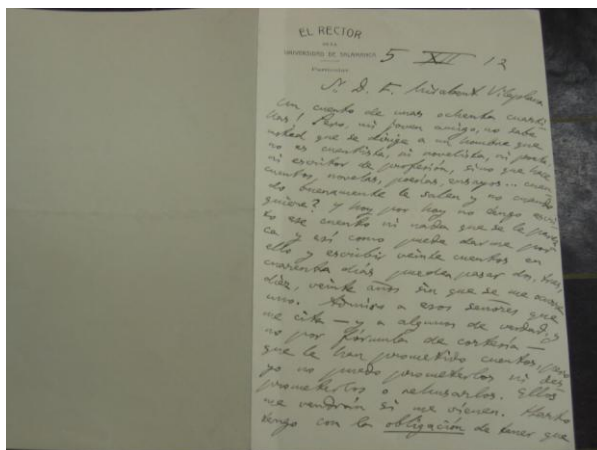 EL RECTOR
DE LA
UNIVERSIDAD DE SALAMANCA
Particular
5 XII 12
Sr. D. E. Mirabent Vilaplana
Un cuento de unas ochenta cuarti
llas! Pero, mi joven amigo, no sabe
usted que se dirige a un hombre que
no es cuentista, ni novelista, ni poeta,
ni escritor de profesión, sino que hace
cuentos, novelas, poesías, ensayos... cuan
do buenamente le salen y no cuando
quiere? Y hoy por hoy no tengo escri
to ese cuento ni nada que se le parez
ca y así como puede darme por
ello y escribir veinte cuentos en
cuarenta días pueden pasar dos, tres,
diez, veinte años sin que se me ocurra
uno. Admiro a esos señores que
me cita — y a algunos de verdad, y
no por fórmula de cortesía —
que le han prometido cuentos, pero
yo no puedo prometerlos ni des
prometerlos o rehusarlos. Ellos
me vendrán si me vienen. Harto
tengo con la obligación de tener que